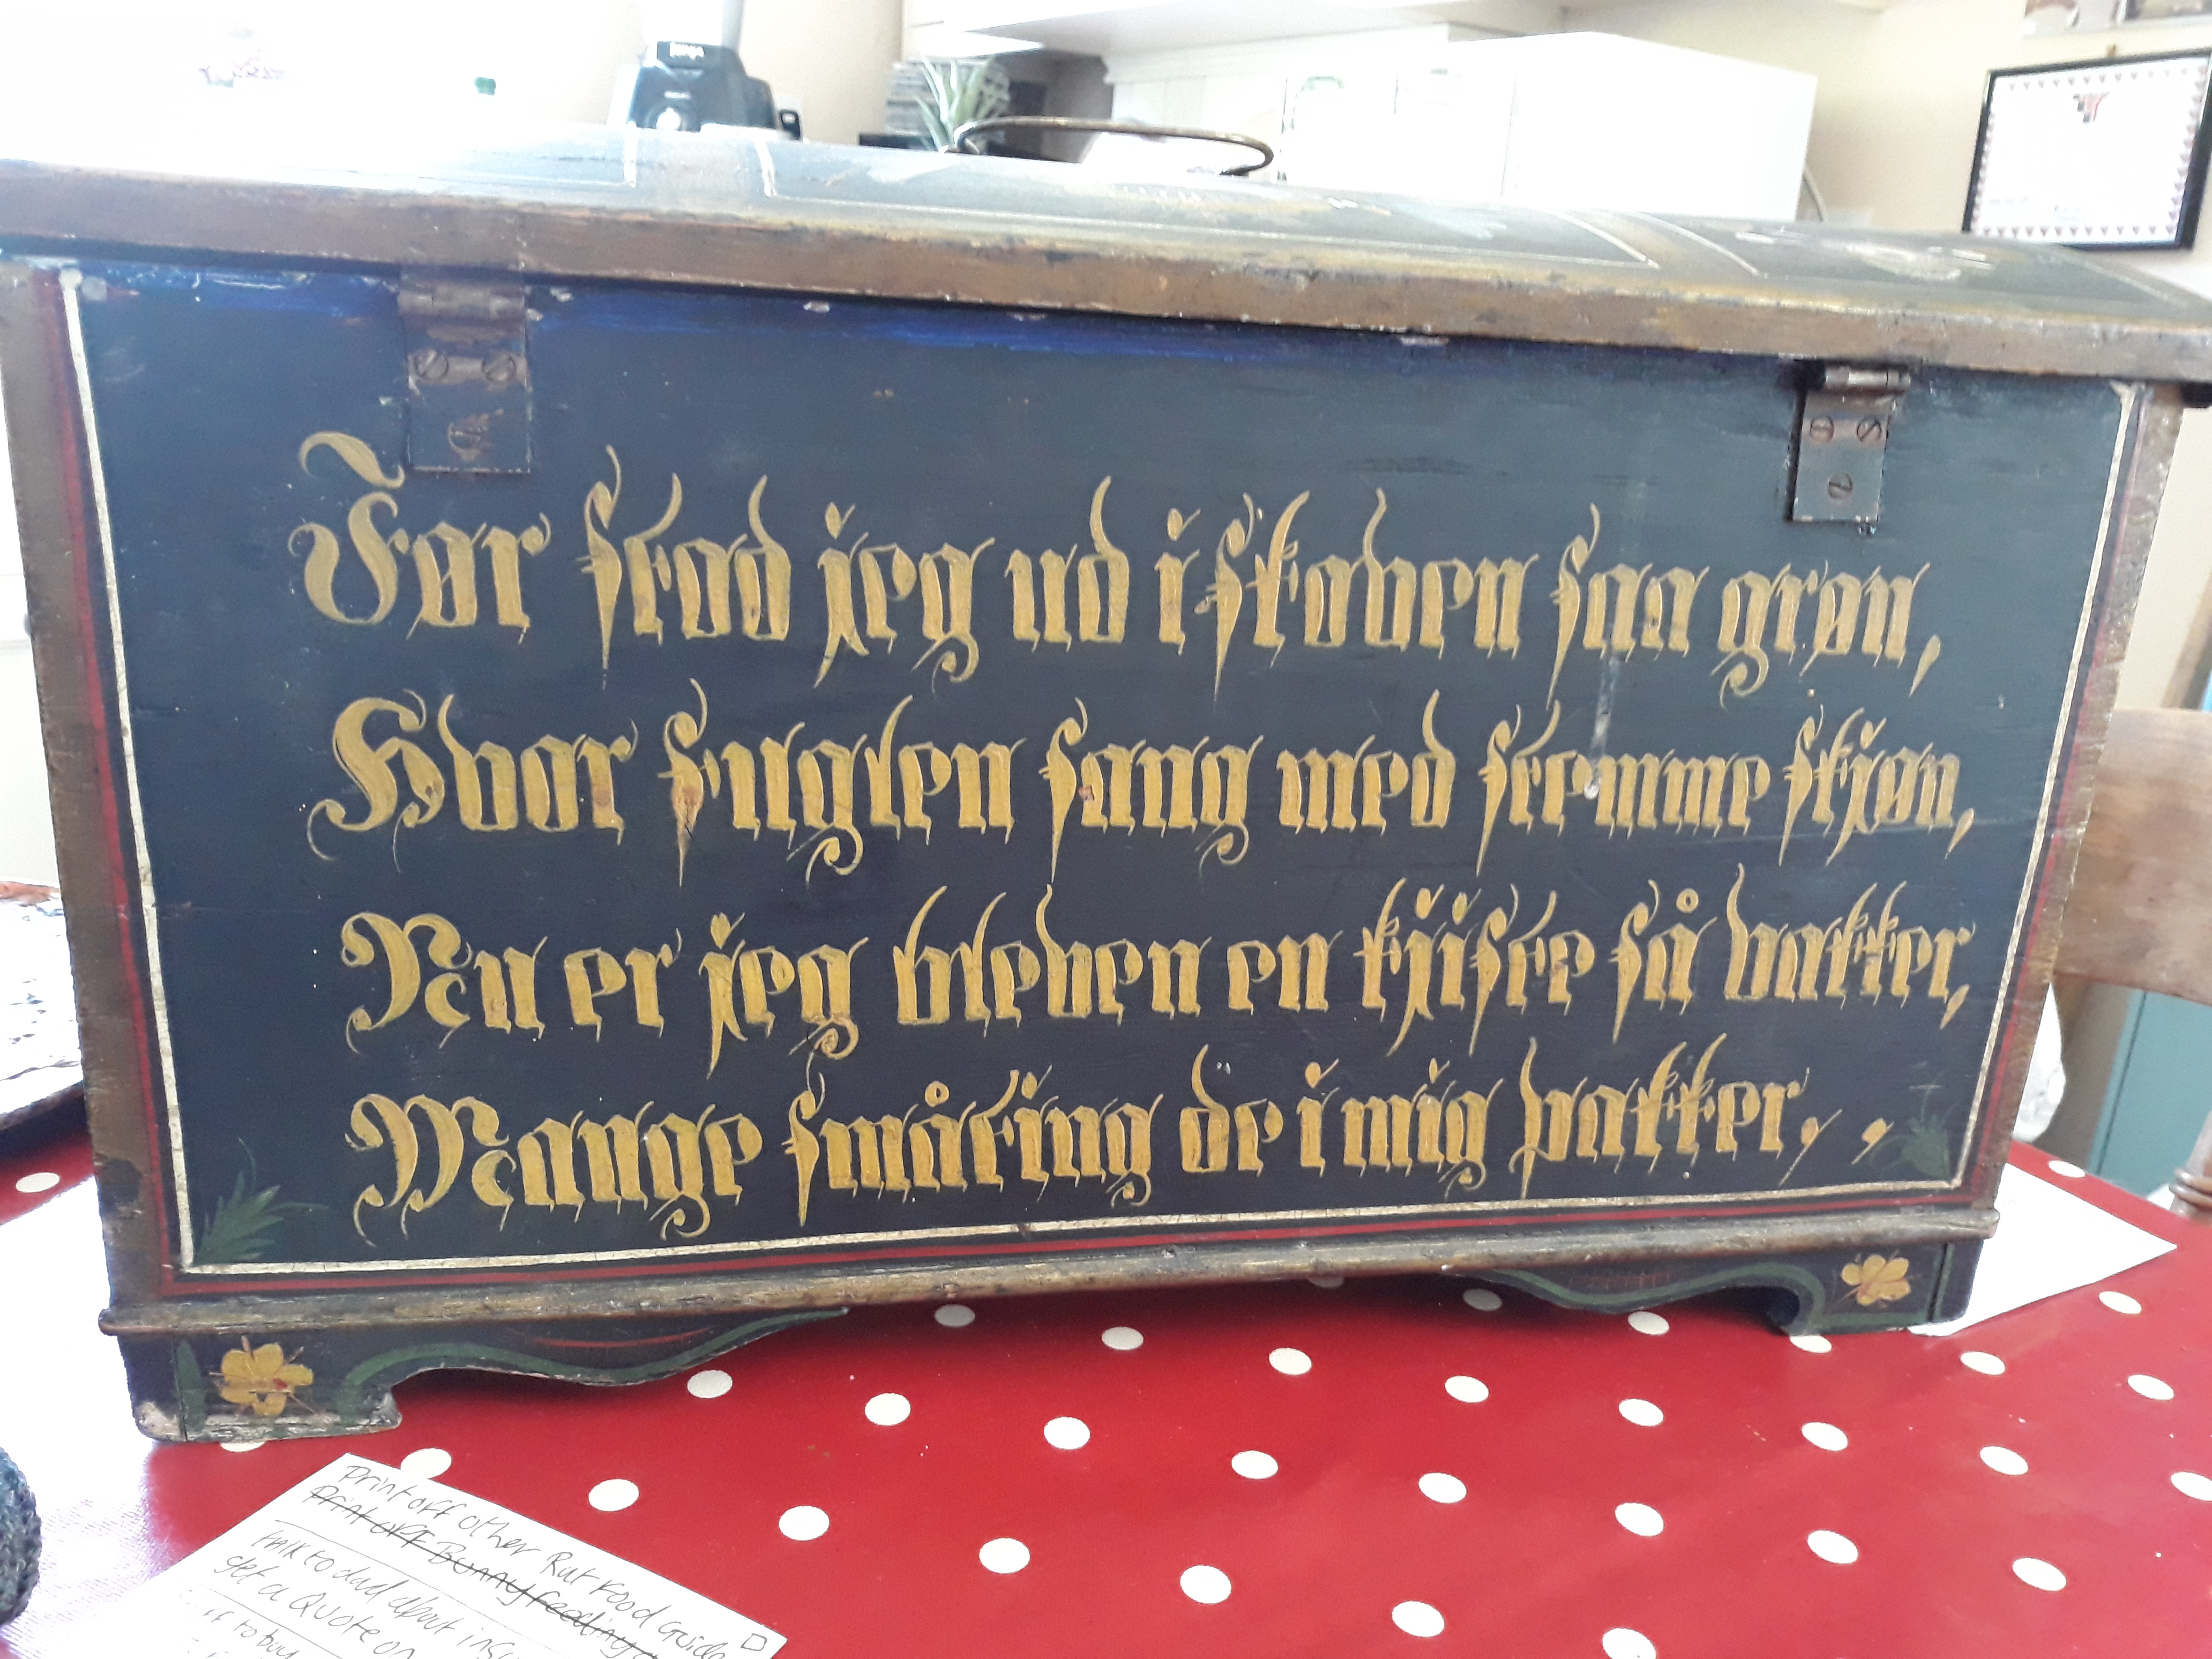 Før stod jeg ud i skoven saa grøn,
Hvor fuglen sang med stemme skjøn,
Nu er jeg bleven en kjiste så vakker,
Mange småting de i mig pakker,,
Print off other Rat Food Guide
Print off Bunny feeding
talk to dad about
get a Quote on
to buy